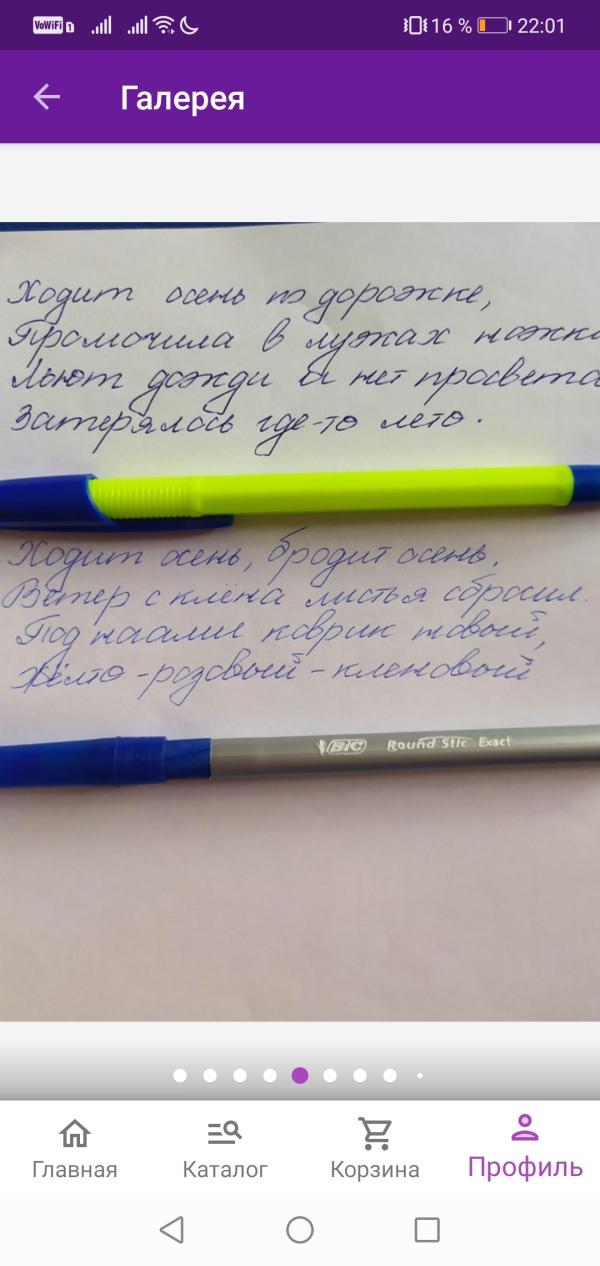 VoWiFi 1 16 % 22:01
Галерея
Ходит осень по дорожке,
Промочила в лужах ножки
Льют дожди и нет просвета
Затерялось где-то лето.
Ходит осень, бродит осень.
Ветер с клёна листья сбросил.
Под ногами коврик новый,
Жёлто-розовый-кленовый
BIC Round Stic Exact
Главная Каталог Корзина Профиль